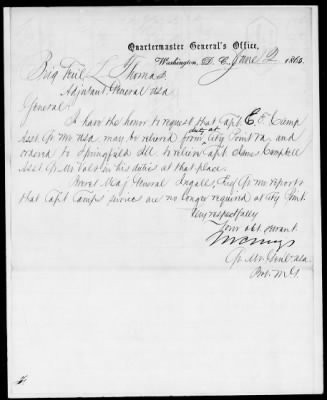 Quartermaster General's Office,
Washington, D. C., June 12 1865.
Brig Genl L. Thomas,
Adjutant General USA
General:
I have the honor to request that Capt E. E. Camp
duty at
Asst Qr Mr USA may be relieved from City Point Va, and
ordered to Springfield Ill. to relieve Capt James Campbell
Asst Qr Mr Vols in his duties at that place.
Brevet Maj General Ingalls, Chf Qr Mr reports
that Capt Camps services are no longer required at City Point.
Very respectfully
Your obt servant.
Qr Mr Genl USA
Bvt. M. G.